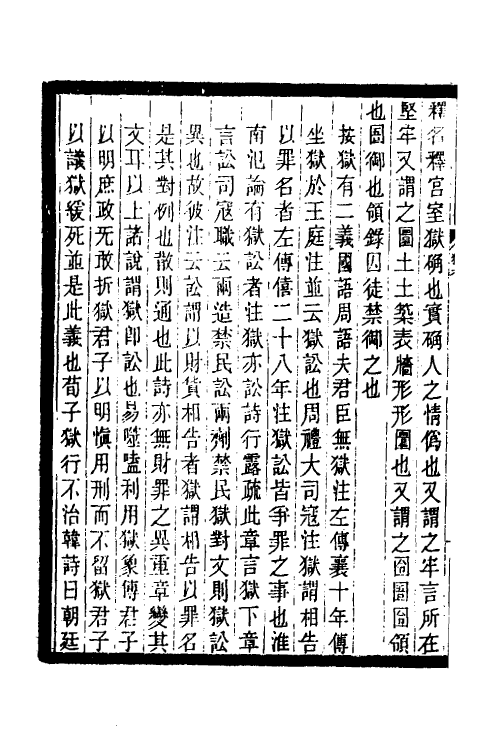 釋名釋宮室獄确也實确人之情僞也又謂之牢言所在
堅牢又謂之圜土土築表牆形形圜也又謂之囹圄囹領
也圄御也領錄囚徒禁御之也
按獄有二義國語周語夫君臣無獄注左傳襄十年傳
坐獄於王庭注並云獄訟也周禮大司寇注獄謂相告
以罪名者左傳僖二十八年注獄訟皆爭罪之事也淮
南氾論有獄訟者注獄亦訟詩行露疏此章言獄下章
言訟司寇職云兩造禁民訟兩劑禁民獄對文則獄訟
異也故彼注云訟謂以財貨相告者獄謂相告以罪名
是其對例也散則通也此詩亦無財罪之異重章變其
文耳以上諸說謂獄卽訟也易噬嗑利用獄象傳君子
以明庶政无敢折獄君子以明愼用刑而不留獄君子
以議獄緩死並是此義也荀子獄行不治韓詩曰朝廷